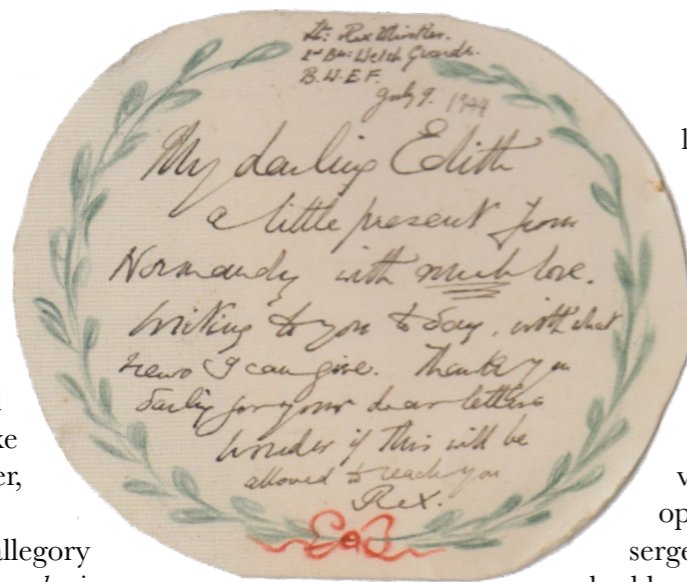 Lt: Rex Whistler.
2nd Bn: Welsh Guards.
B.W.E.F.
July 9. 1944
My darling Edith
a little present from
Normandy with much love.
Writing to you to day, with what
news I can give. Thank you
darling for your dear letters
wonder if this will be
allowed to reach you
Rex.
ke
er,
allegory
op
serge